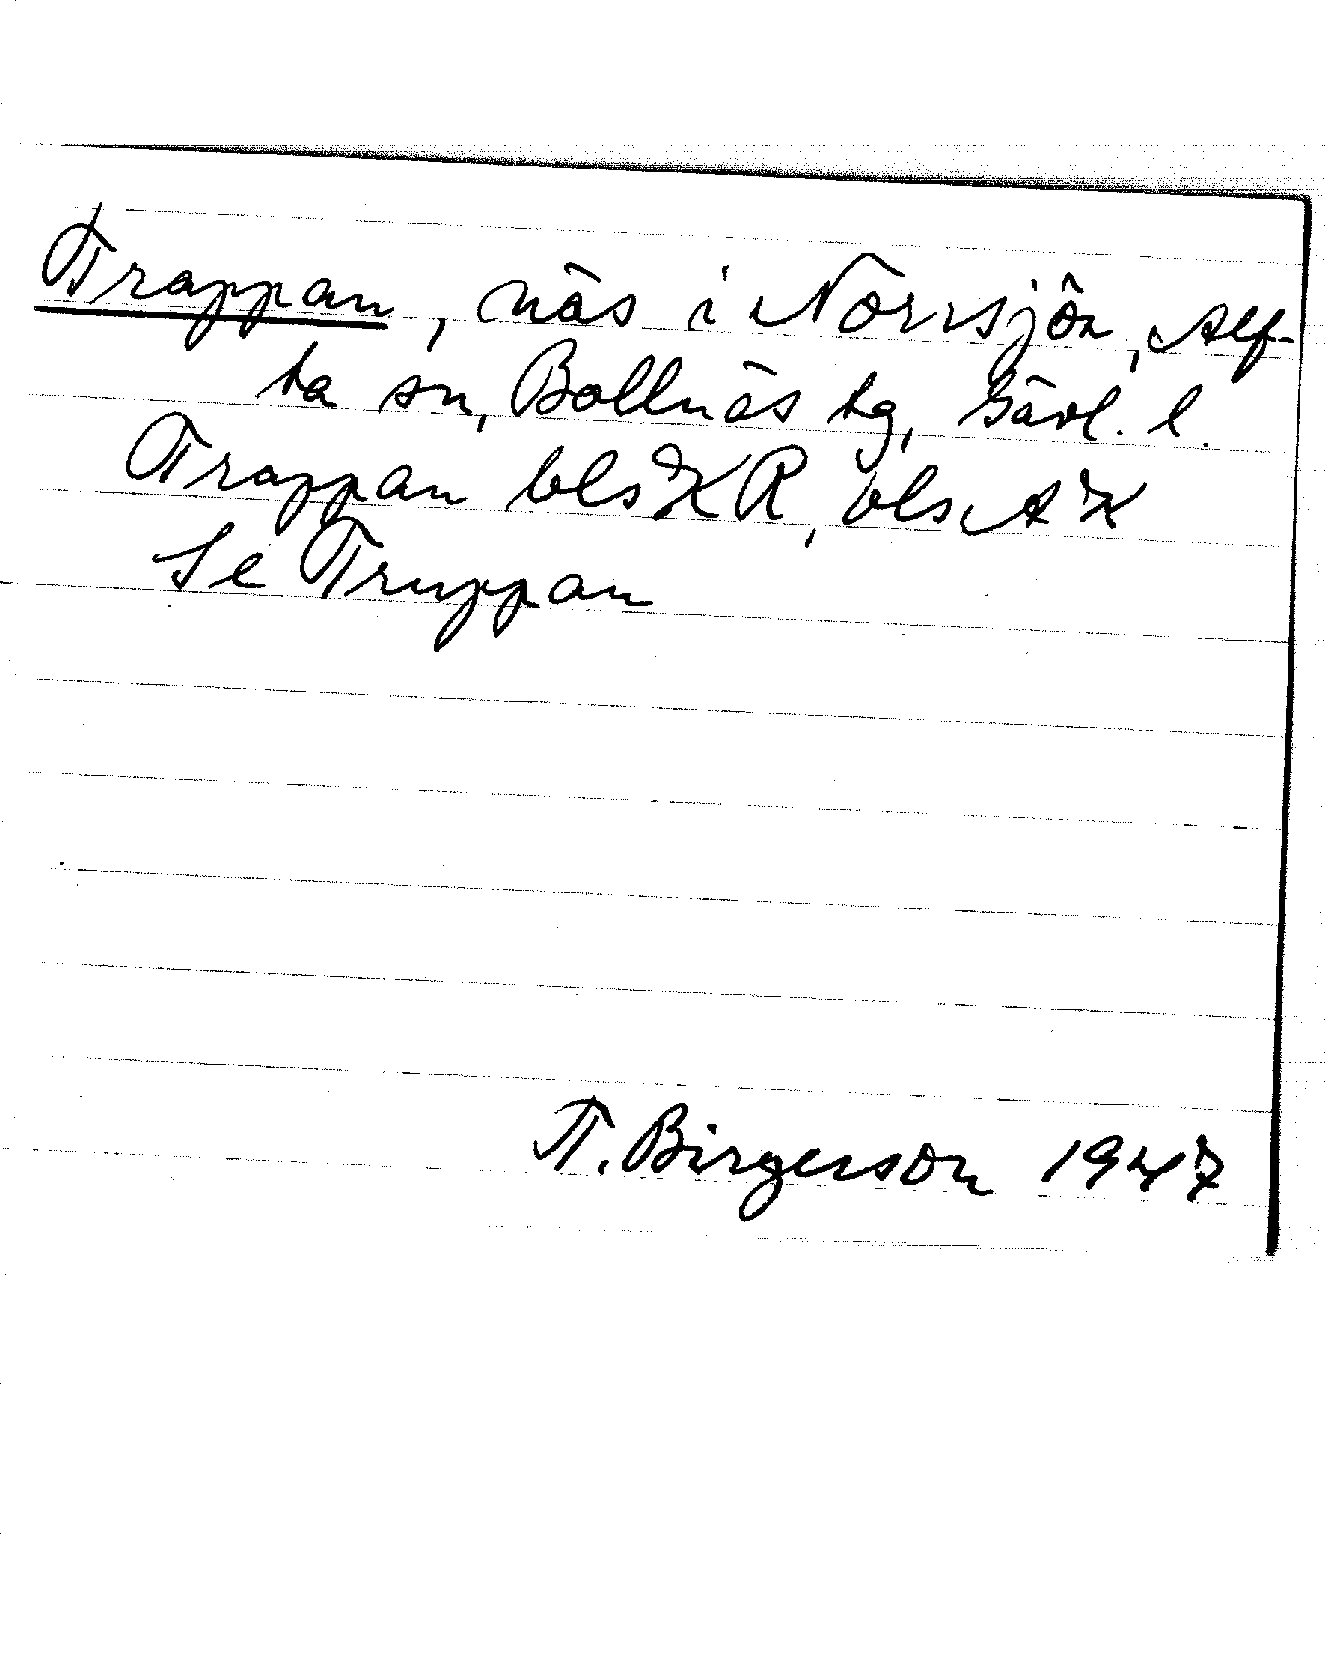 Trappan, näs i Norrsjön, Alf-
ta sn, Bollnäs tg, Gävl. l.
Trappan bls KR, bls AK
Se Truppan
T. Birgerson 1947